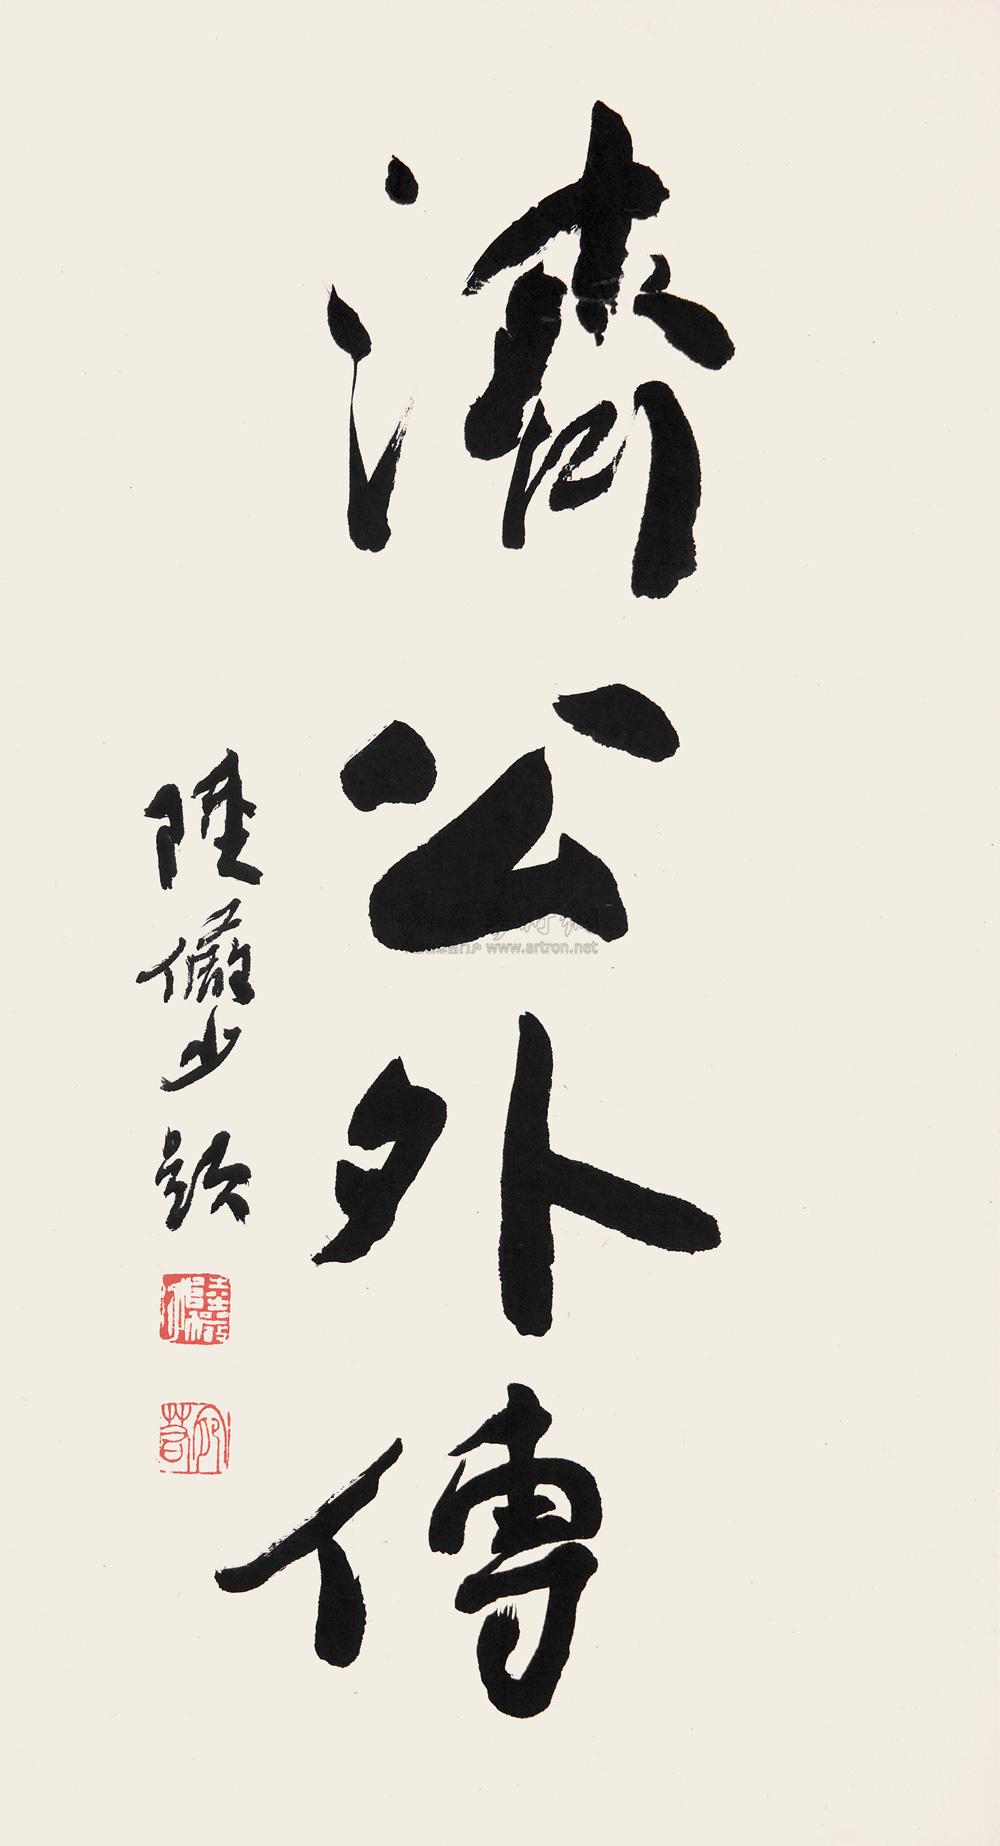 濟公外傳
陸儼少題
www.artron.net